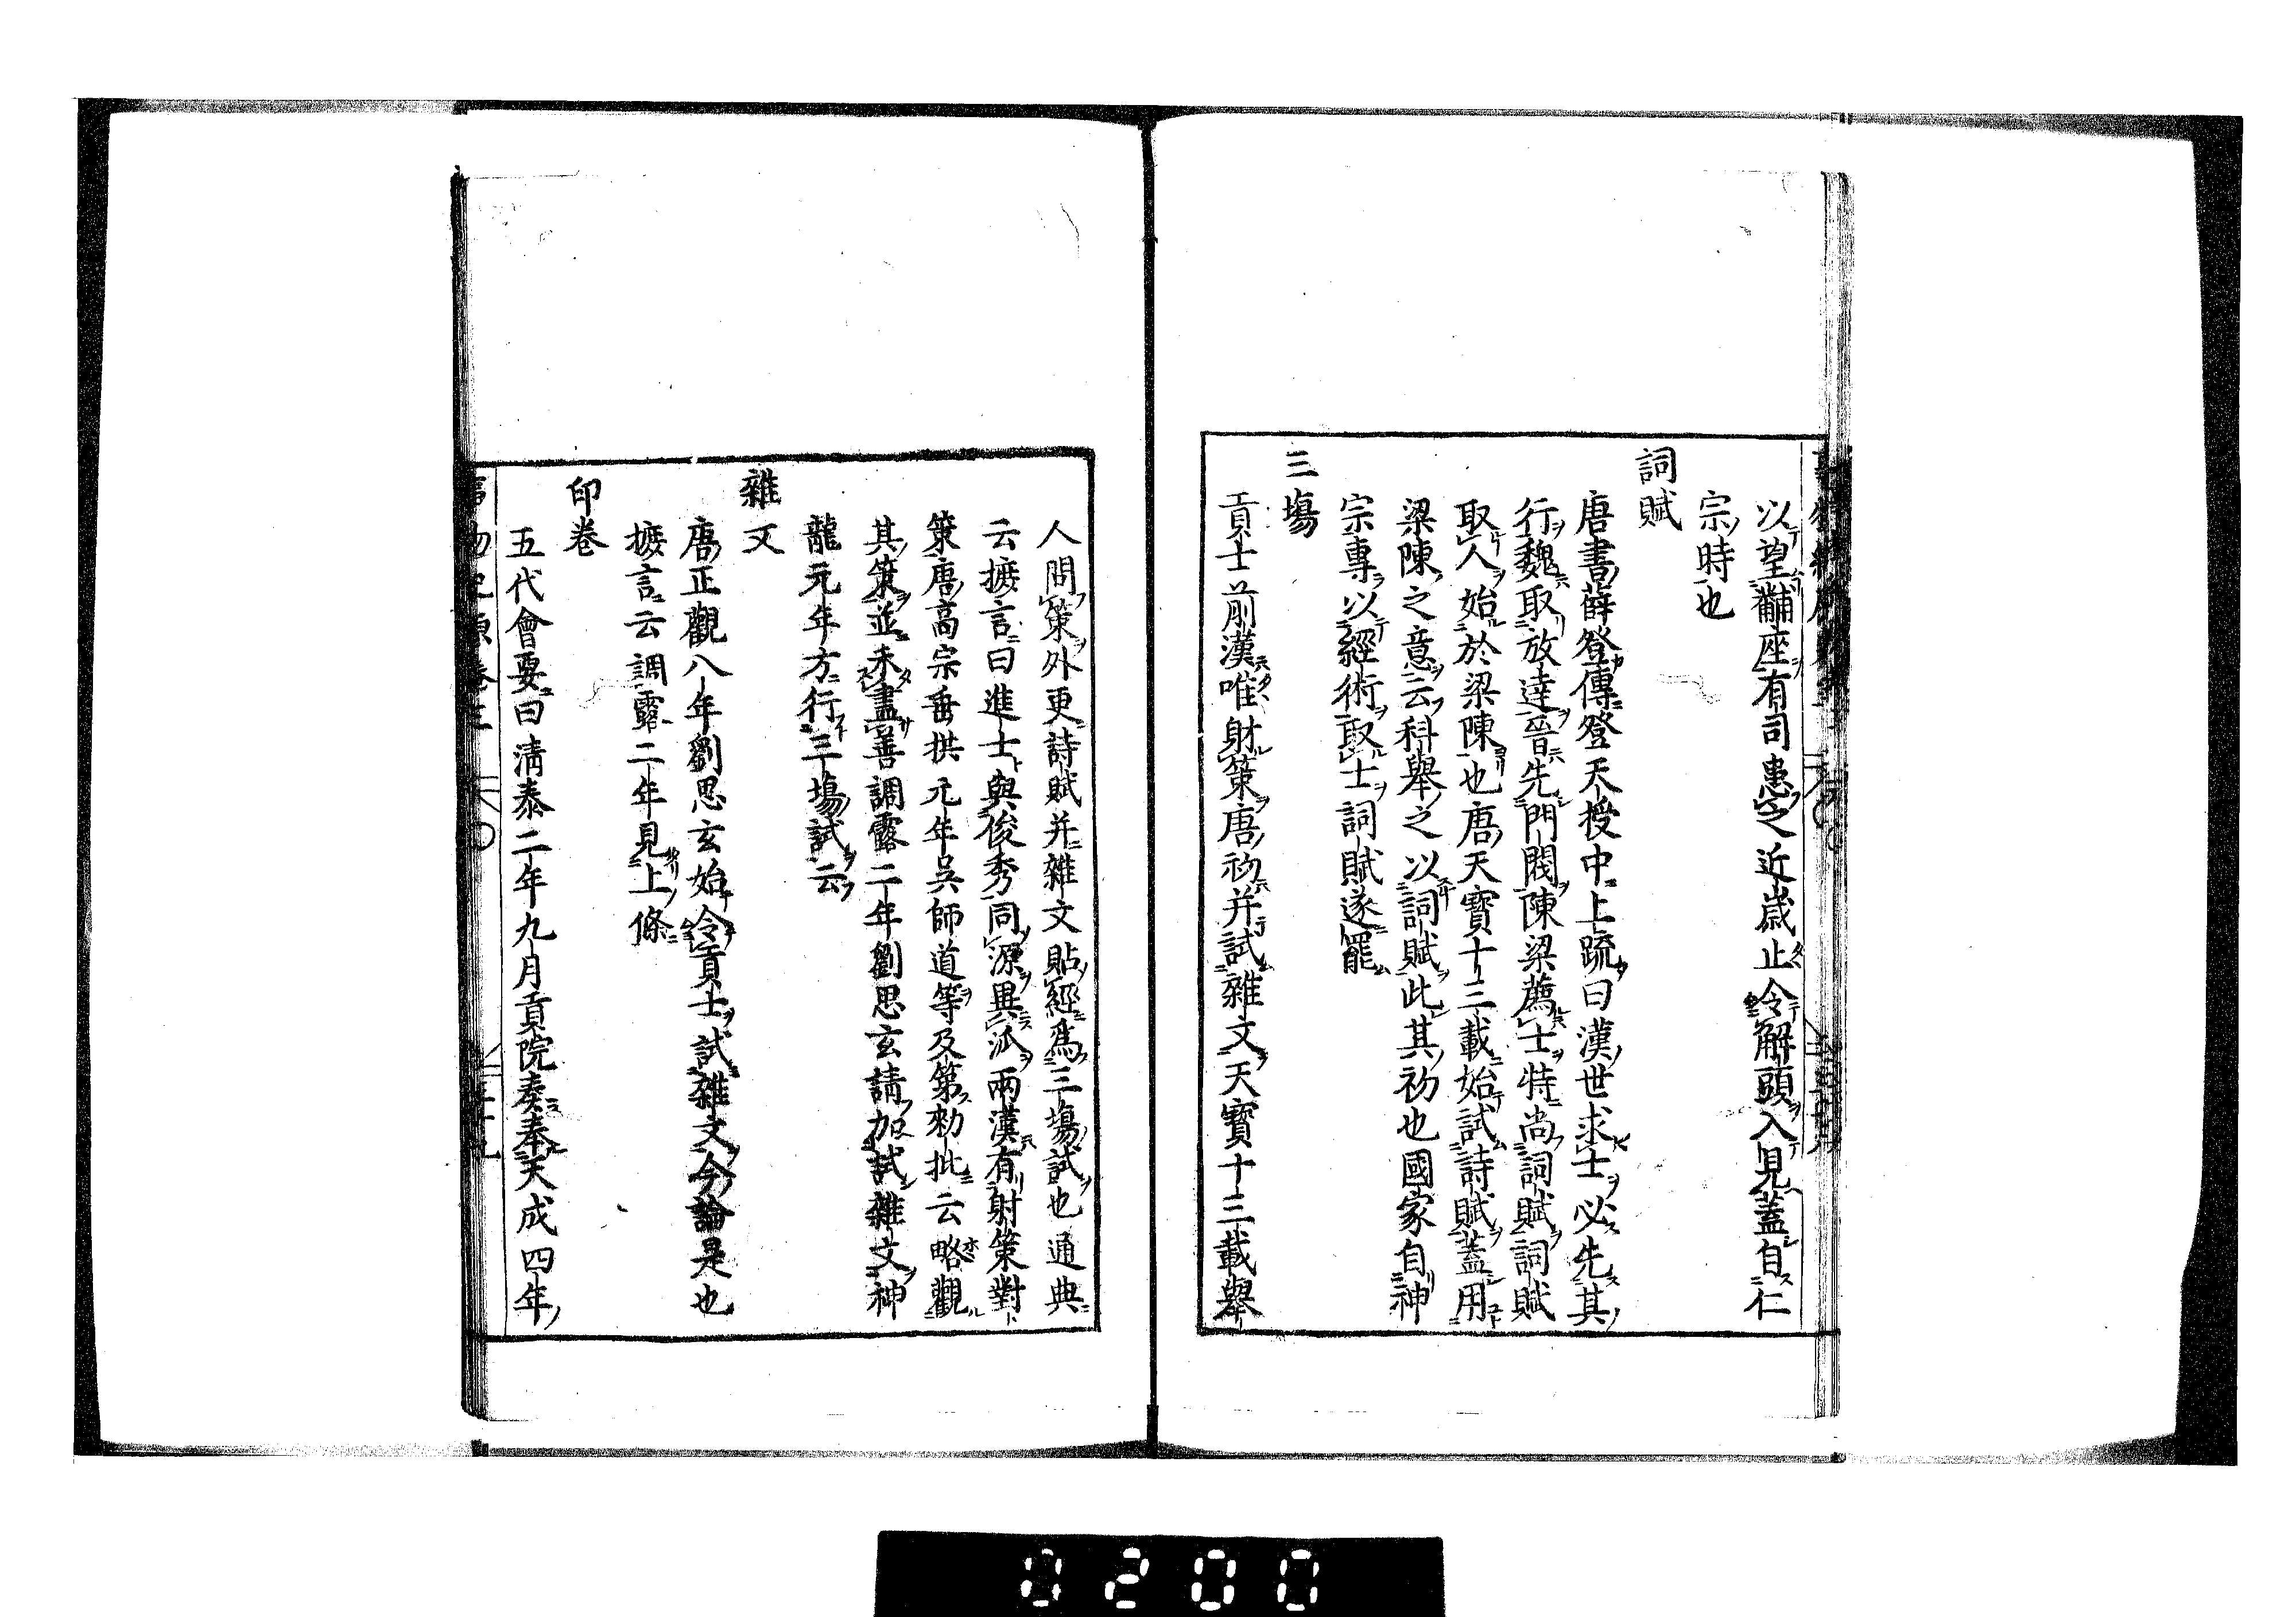 以望黼座有司患之近歲止令解頭入見蓋自仁
宗時也
詞賦
唐書薛登傳登天授中上疏曰漢世求士必先其
行魏取放達晉先門閥陳梁薦士特尚詞賦詞賦
取人始於梁陳也唐天寶十三載始試詩賦蓋用
梁陳之意云科舉之以詞賦此其初也國家自神
宗專以經術取士詞賦遂罷
三場
貢士前漢唯射策唐初并試雜文天寶十三載舉
人問策外更詩賦并雜文貼經為三場試也通典
云摭言曰進士與俊秀同源異派兩漢有射策對
策唐高宗垂拱元年吳師道等及第勑批云略觀
其策並未盡善調露二年劉思玄請加試雜文神
龍元年方行三場試云
雜文
唐正觀八年劉思玄始令貢士試雜文今論是也
摭言云調露二年見上條
印卷
五代會要曰清泰二年九月貢院奏奉天成四年
0200